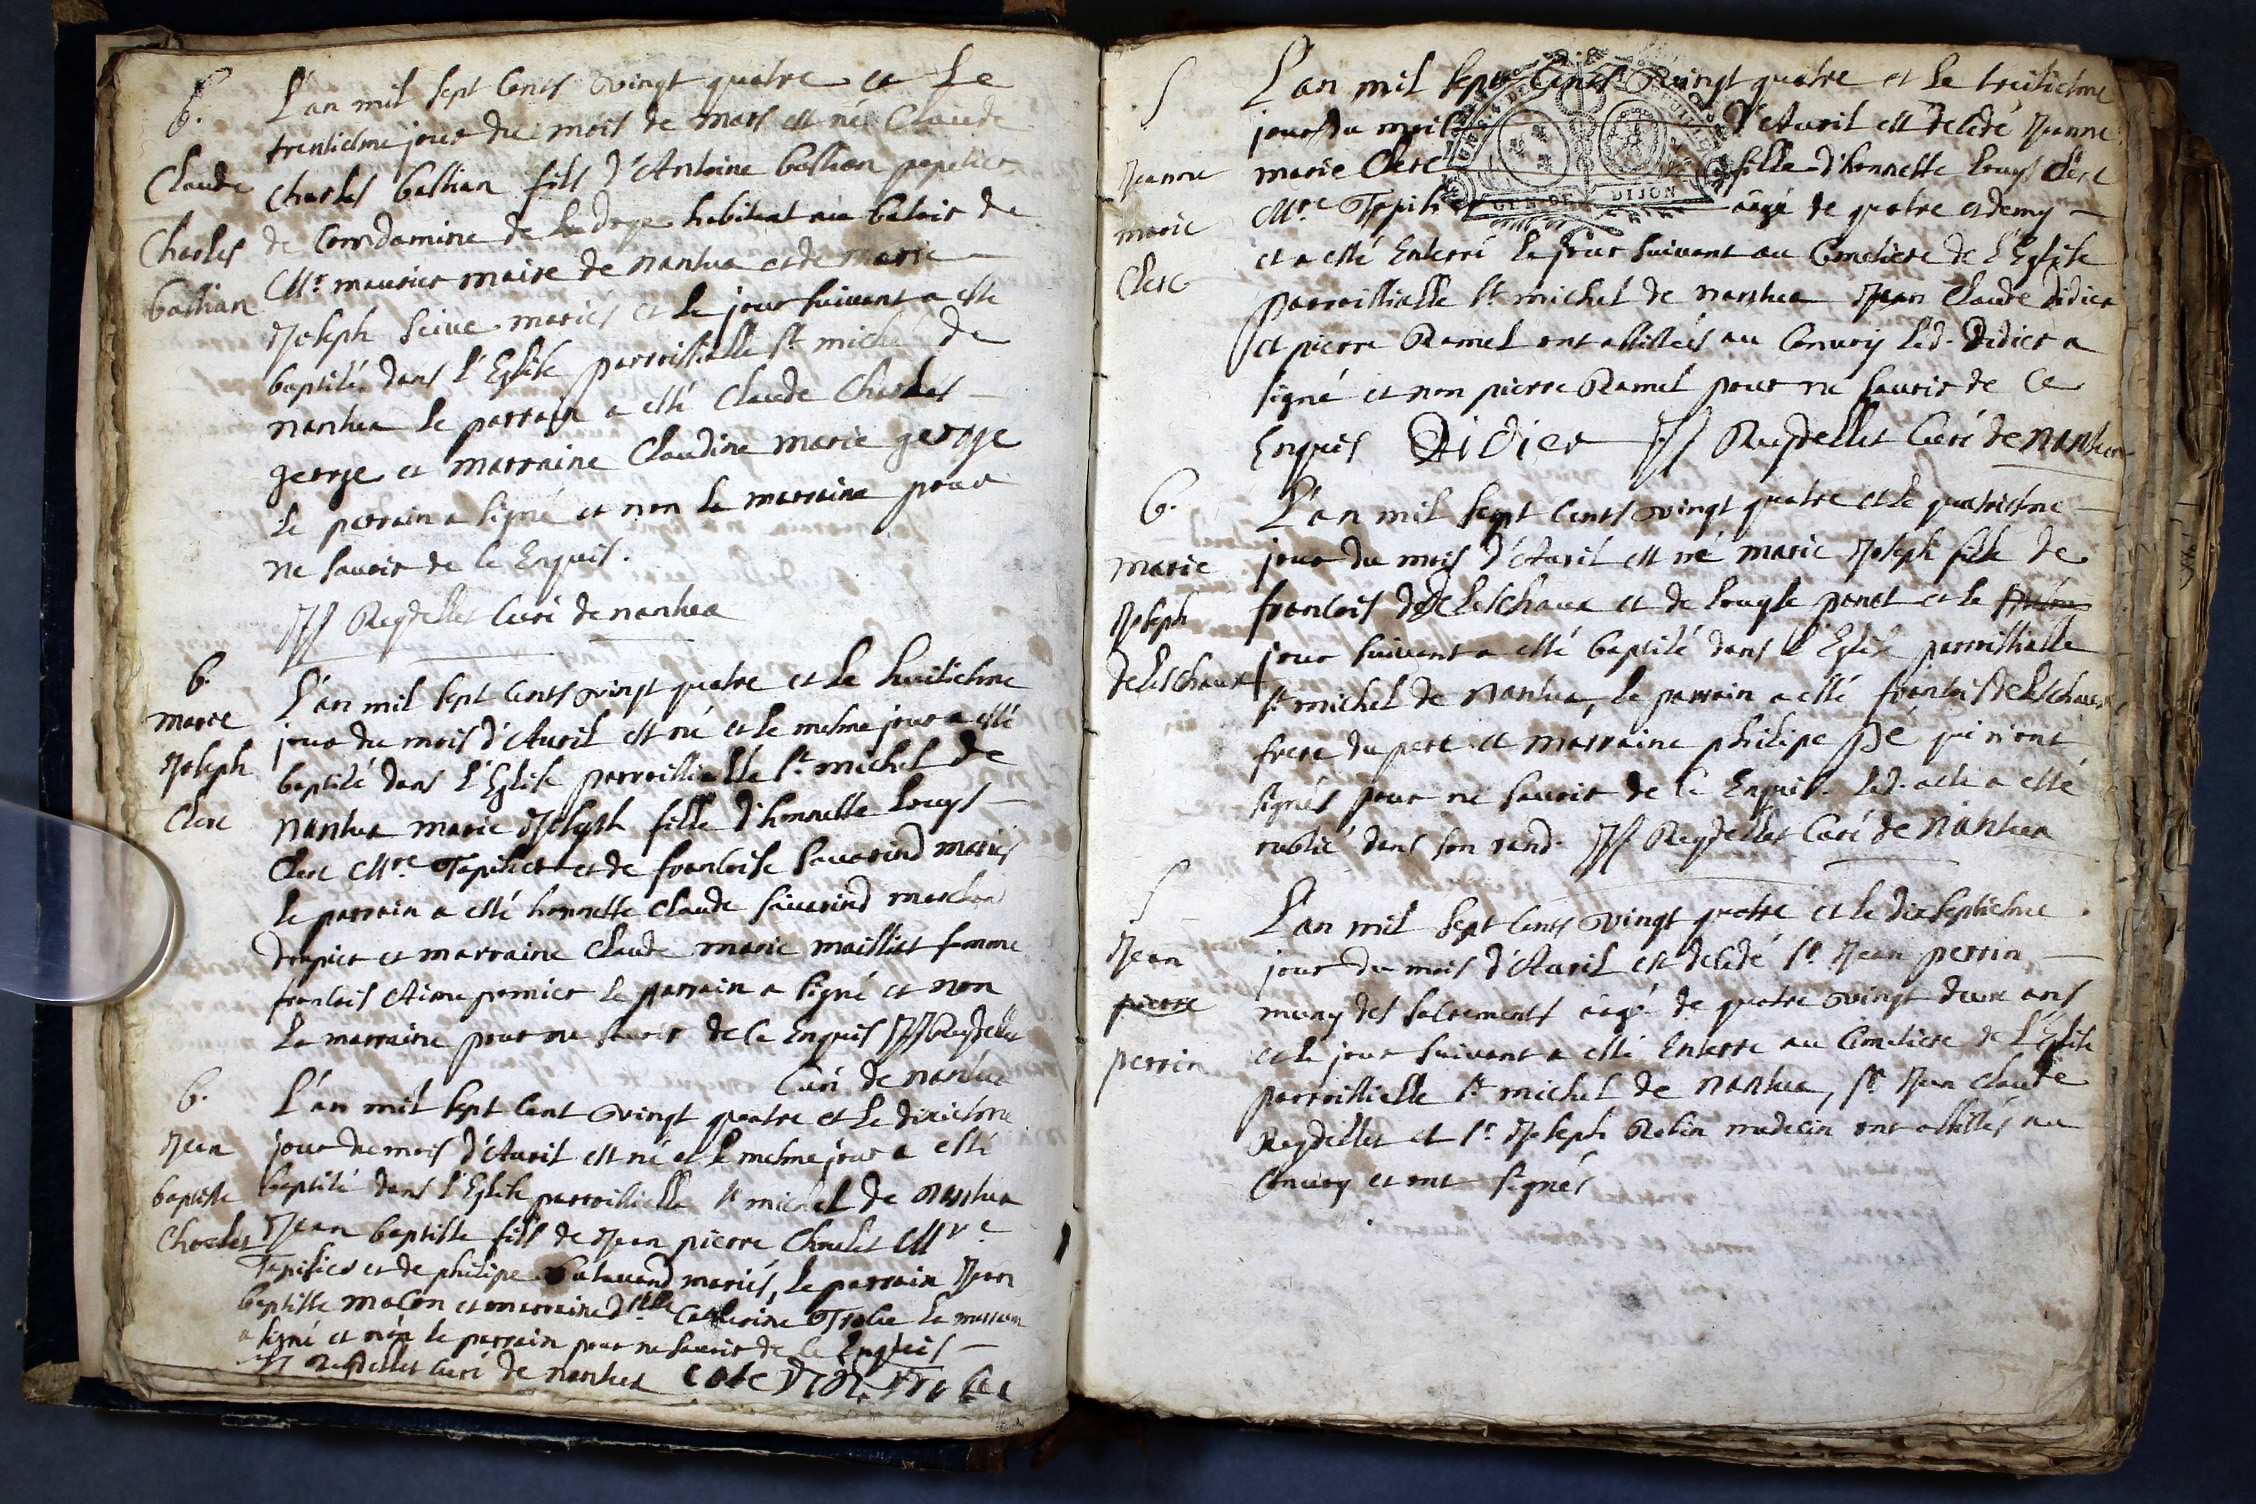 B.
Claude
Charles
bastian
L'an mil sept Cents vingt quatre et Le
trentiesme jour du mois de mars est né Claude
Charles bastian fils d'Antoine bastian papetier
de Condamine de la doye habitant au batoir de
Mr. maurier maire de nantua et de marie
Joseph Seive mariés et le jour suivant a esté
baptisé dans l'Eglise parroissialle St. michel de
nantua le parrain a esté Claude Charles
george et marraine Claudine marie george
le parrain a signé et non la marraine pour
ne savoir de ce Enquis.
JJ Reydellet Curé de nantua
B.
marie
Joseph
Clerc
L'an mil sept Cents vingt quatre et le huitiesme
jour du mois d'Avril est né et le mesme jour a esté
baptisé dans l'Eglise parroissialle St. michel de
nantua marie Joseph fille d'honneste Louys
Clerc Mre. Tapissier et de francoise Savarind mariés
le parrain a esté honneste Claude Savarind marchand
drapier et marraine Claude marie mailliat femme
francois Aime premier le parrain a signé et non
la marraine pour ne savoir de Ce Enquis JJ Reydellet
Curé de nantua
B.
Jean
baptiste
Choulet
L'an mil sept Cent vingt quatre et Le dixiesme
jour du mois d'Avril est né et le mesme jour a esté
baptisé dans l'Eglise parroissialle St michel de Nantua
Jean baptiste fils de Jean pierre Choulet Mre
Tapissier et de philipe mariés, le parrain Jean
baptiste maCon et marraine dlle Catherine la marraine
a signé et non le parrain pour ne savoir de Ce Enquis
JJ Reydellet Curé de nantua
S
Jeanne
marie
Clerc
L'an mil sept Cents vingt quatre et le treiziesme
jour du mois d'Avril est decedé Jeanne
marie Clerc fille d'honneste Louys Clerc
Mre Tapissier aagé de quatre et demy
et a esté Enterré le jour suivant au Cimetiere de l'Eglise
parroissialle St. michel de nantua Jean Claude didier
et pierre Ramel ont assistés au Convoy led. Didier a
signé et non pierre Ramel pour ne savoir de Ce
Enquis Didier JJ Reydellet Curé de nantua
B.
marie
Joseph
deleschaux
L'an mil sept Cents vingt quatre et le quatriesme
jour du mois d'Avril est né marie Joseph fille de
francois deleschaux et de Louyse ponet et le
jour suivant a esté baptisé dans l'Eglise parroissialle
St michel de nantua, le parrain a esté francois deleschaux
frere du pere et marraine philipe qui n'ont
signés pour ne savoir de Ce Enquis. Led. acte a esté
oublié dans son rand. JJ Reydellet Curé de nantua
S
Jean
pierre
perrin
L'an mil sept Cents vingt quatre et le dixseptiesme
jour du mois d'Avril est decedé Sr. Jean perrin
muny des sacrements aagé de quatre vingt deux ans
et le jour suivant a esté Enterré au Cimetiere de l'Eglise
parroissialle St michel de nantua, Sr. Jean Claude
Reydellet et Sr. Joseph Robin medecin ont assistés au
Convoy et ont signés
DIJON